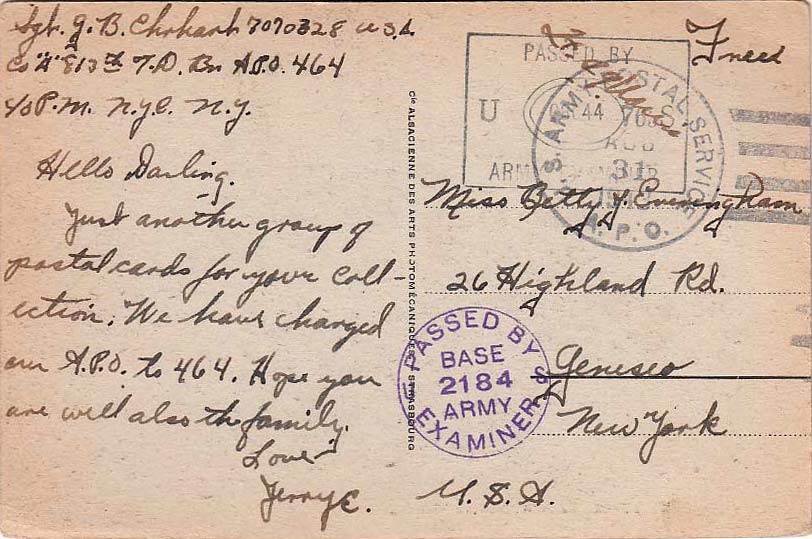 Sgt. J. B. Ehrhart 7070328 U.S.A.
Co "A" 813th T.D. Bn A.P.O. 464
c/o P.M. N.Y.C. N.Y.
Hello Darling,
Just another group of
postal cards for your coll-
ection. We have changed
our A.P.O. to 464. Hope you
are well also the family.
Love
Jerry E.
Cie ALSACIENNE DES ARTS PHOTOMÉCANIQUES STRASBOURG
Free
PASSED BY
U S
ARMY EXAMINER
U.S. ARMY POSTAL SERVICE
AUG
31
A.P.O.
Miss Betty J. Everingham
26 Highland Rd.
Geneseo
New York
U.S.A.
PASSED BY
BASE
2184
ARMY
EXAMINERS